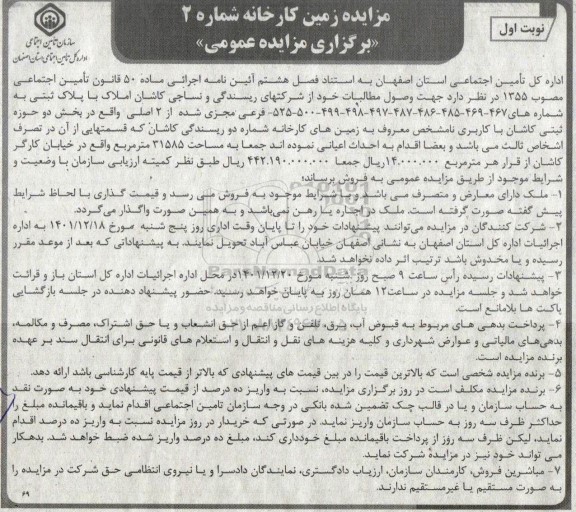 نوبت اول
مزایده زمین کارخانه شماره ۲
«برگزاری مزایده عمومی»
سازمان تأمین اجتماعی
اداره کل تأمین اجتماعی استان اصفهان
اداره کل تأمین اجتماعی استان اصفهان به استناد فصل هشتم آئین نامه اجرائی ماده ۵۰ قانون تأمین اجتماعی
مصوب ۱۳۵۵ در نظر دارد جهت وصول مطالبات خود از شرکتهای ریسندگی و نساجی کاشان املاک با پلاک ثبتی به
شماره های ۴۶۷-۴۶۹-۴۸۵-۴۸۶-۴۸۷-۴۹۷-۴۹۸-۴۹۹-۵۰۰-۵۲۵- فرعی مجزی شده از ۲ اصلی واقع در بخش دو حوزه
ثبتی کاشان با کاربری نامشخص معروف به زمین های کارخانه شماره دو ریسندگی کاشان که قسمتهایی از آن در تصرف
اشخاص ثالث می باشد و بعضا اقدام به احداث اعیانی نموده اند جمعا به مساحت ۳۱۵۸۵ مترمربع واقع در خیابان کارگر
کاشان از قرار هر مترمربع ۱۴.۰۰۰.۰۰۰ ریال جمعا ۴۴۲.۱۹۰.۰۰۰.۰۰۰ ریال طبق نظر کمیته ارزیابی سازمان با وضعیت و
شرایط موجود از طریق مزایده عمومی به فروش برساند؛
۱- ملک دارای معارض و متصرف می باشد و با شرایط موجود به فروش می رسد و قیمت گذاری با لحاظ شرایط
پیش گفته صورت گرفته است. ملک در اجاره یا رهن نمی‌باشد و به همین صورت واگذار می‌گردد.
۲- شرکت کنندگان در مزایده می‌توانند پیشنهادات خود را تا پایان وقت اداری روز پنج شنبه مورخ ۱۴۰۱/۱۲/۱۸ به اداره
اجرائیات اداره کل استان اصفهان به نشانی اصفهان خیابان عباس آباد تحویل نمایند. به پیشنهاداتی که بعد از موعد مقرر
رسیده و یا مخدوش باشد ترتیب اثر داده نخواهد شد.
۳- پیشنهادات رسیده رأس ساعت ۹ صبح روز شنبه مورخ ۱۴۰۱/۱۲/۲۰ در محل اداره اجرائیات اداره کل استان باز و قرائت
خواهد شد و جلسه مزایده در ساعت ۱۲ همان روز به پایان خواهد رسید. حضور پیشنهاد دهنده در جلسه بازگشایی
پاکت ها بلامانع است.
۴- پرداخت بدهی های مربوط به قبوض آب، برق، تلفن و گاز اعم از حق انشعاب و یا حق اشتراک، مصرف و مکالمه،
بدهی‌های مالیاتی و عوارض شهرداری و کلیه هزینه های نقل و انتقال و استعلام های قانونی برای انتقال سند بر عهده
برنده مزایده است.
۵- برنده مزایده شخصی است که بالاترین قیمت را در بین قیمت های پیشنهادی که بالاتر از قیمت پایه کارشناسی باشد ارائه دهد.
۶- برنده مزایده مکلف است در روز برگزاری مزایده، نسبت به واریز ده درصد از قیمت پیشنهادی خود به صورت نقد
به حساب سازمان و یا در قالب چک تضمین شده بانکی در وجه سازمان تامین اجتماعی اقدام نماید و باقیمانده مبلغ را
حداکثر ظرف سه روز به حساب سازمان واریز نماید. در صورتی که خریدار در روز مزایده نسبت به واریز ده درصد اقدام
نماید، لیکن ظرف سه روز از پرداخت باقیمانده مبلغ خودداری کند، مبلغ ده درصد واریز شده ضبط خواهد شد. بدهکار
می تواند خود نیز در مزایده شرکت نماید.
۷- مباشرین فروش، کارمندان سازمان، ارزیاب دادگستری، نمایندگان دادسرا و یا نیروی انتظامی حق شرکت در مزایده را
به صورت مستقیم یا غیرمستقیم ندارند.
۶۹
پایگاه اطلاع رسانی مناقصه و مزایده